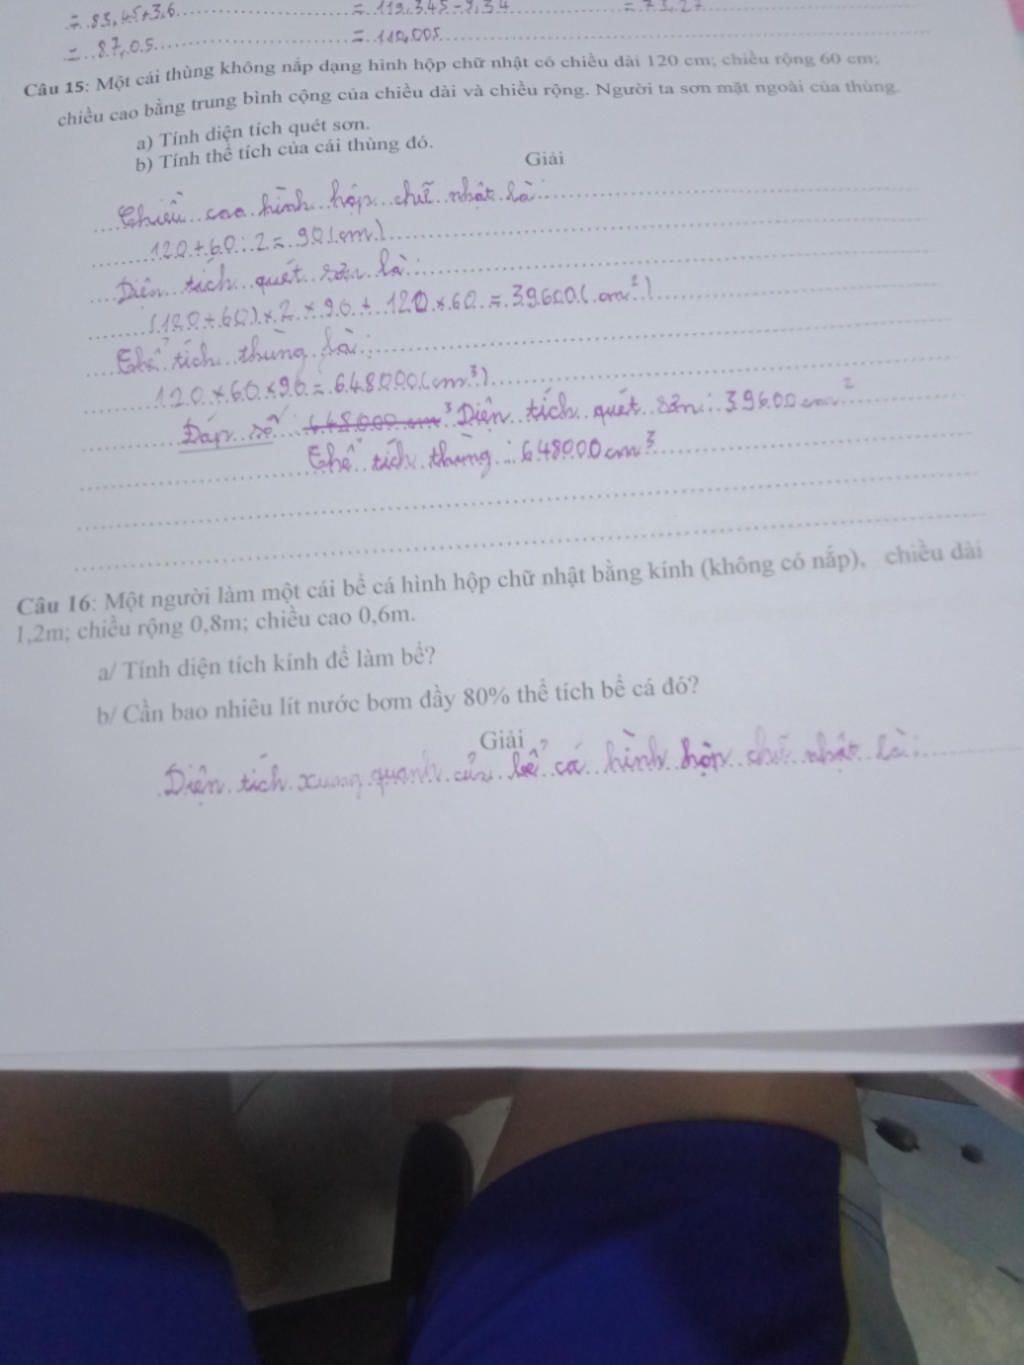 = 83,45+3,6
= 119,345-9,34
= 73,27
= 87,05
= 110,005
Câu 15: Một cái thùng không nắp dạng hình hộp chữ nhật có chiều dài 120 cm; chiều rộng 60 cm;
chiều cao bằng trung bình cộng của chiều dài và chiều rộng. Người ta sơn mặt ngoài của thùng.
a) Tính diện tích quét sơn.
b) Tính thể tích của cái thùng đó.
Giải
Chiều cao hình hộp chữ nhật là:
120+60:2=90(cm)
Diện tích quét sơn là:
(120+60)×2×90+120×60=39600(cm²)
Thể tích thùng là:
120×60×90=648000(cm³)
Đáp số: 648000 cm³ Diện tích quét sơn: 39600cm²
Thể tích thùng: 648000cm³
Câu 16: Một người làm một cái bể cá hình hộp chữ nhật bằng kính (không có nắp), chiều dài
1,2m; chiều rộng 0,8m; chiều cao 0,6m.
a/ Tính diện tích kính để làm bể?
b/ Cần bao nhiêu lít nước bơm đầy 80% thể tích bể cá đó?
Giải
Diện tích xung quanh của bể cá hình hộp chữ nhật là: